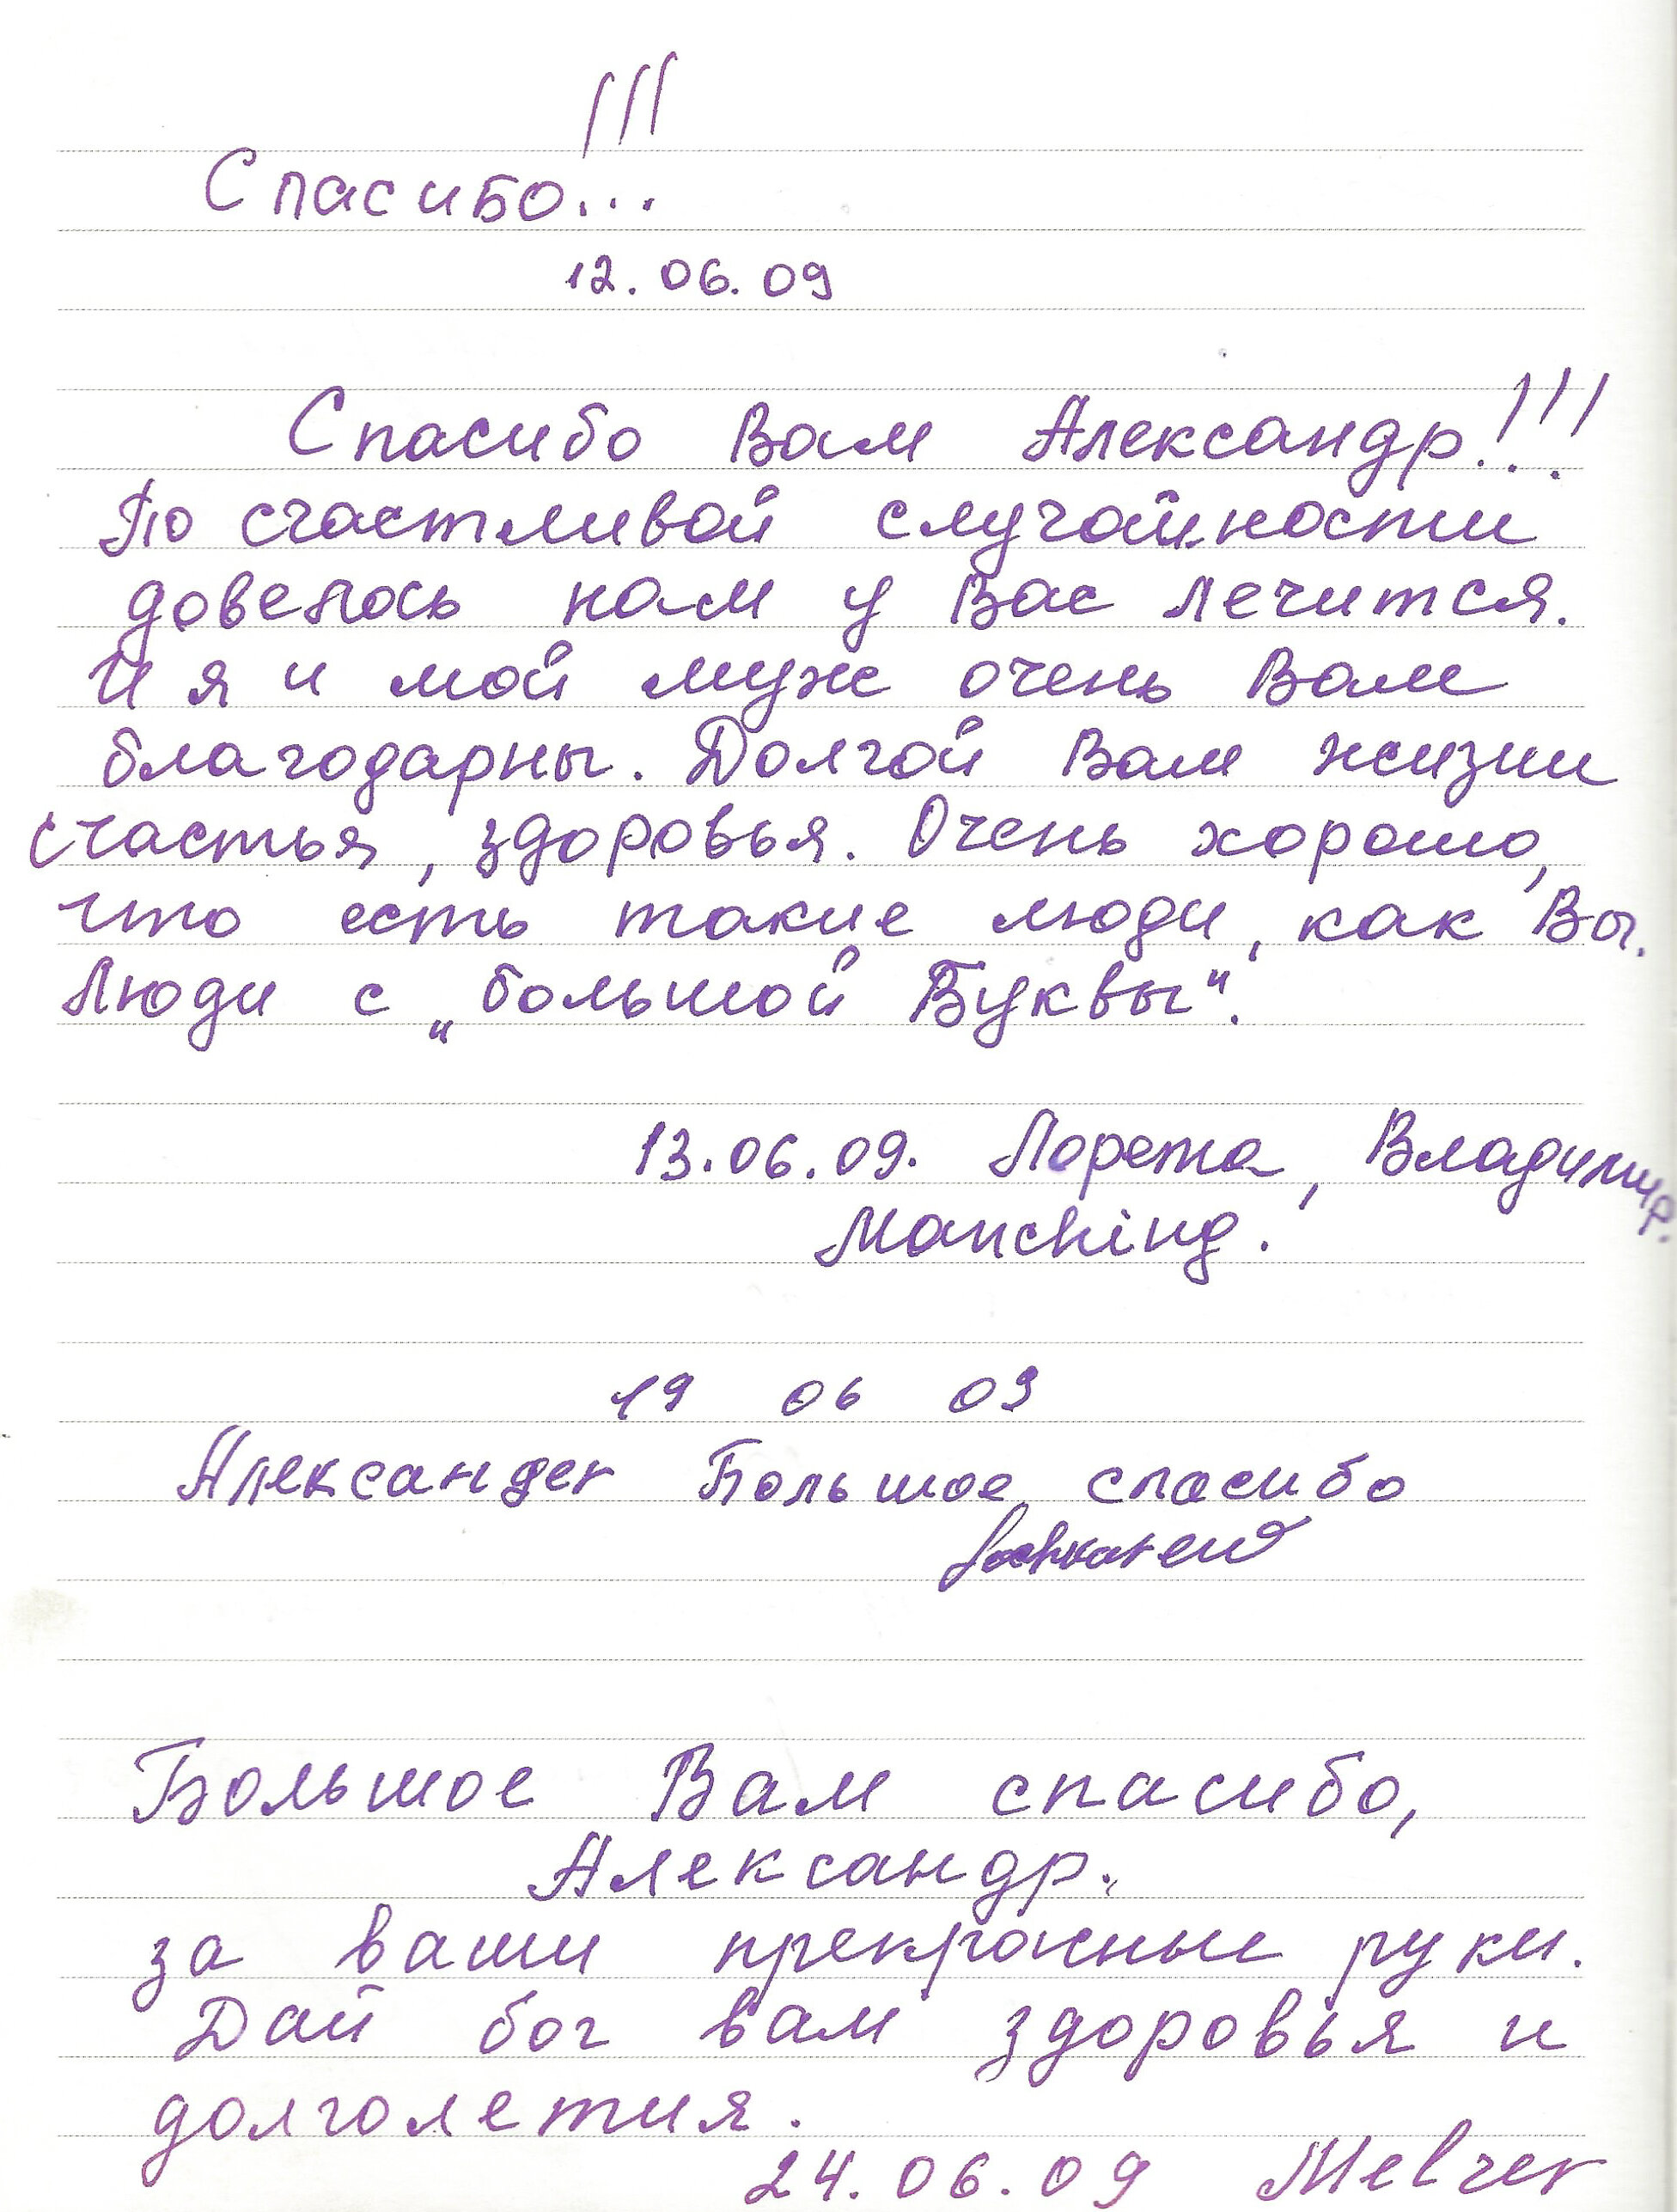 Спасибо...!!!
12.06.09
Спасибо Вам Александр!!!
По счастливой случайности
довелось нам у Вас лечится.
И я и мой муж очень Вам
благодарны. Долгой Вам жизни
счастья, здоровья. Очень хорошо,
что есть такие люди, как Вы.
Люди с „большой Буквы“.
13.06.09. Лорета, Владимир.
Manching.
19 06 09
Александер Большое спасибо
Большое Вам спасибо,
Александр.
за ваши прекрасные руки.
Дай бог вам здоровья и
долголетия.
24.06.09